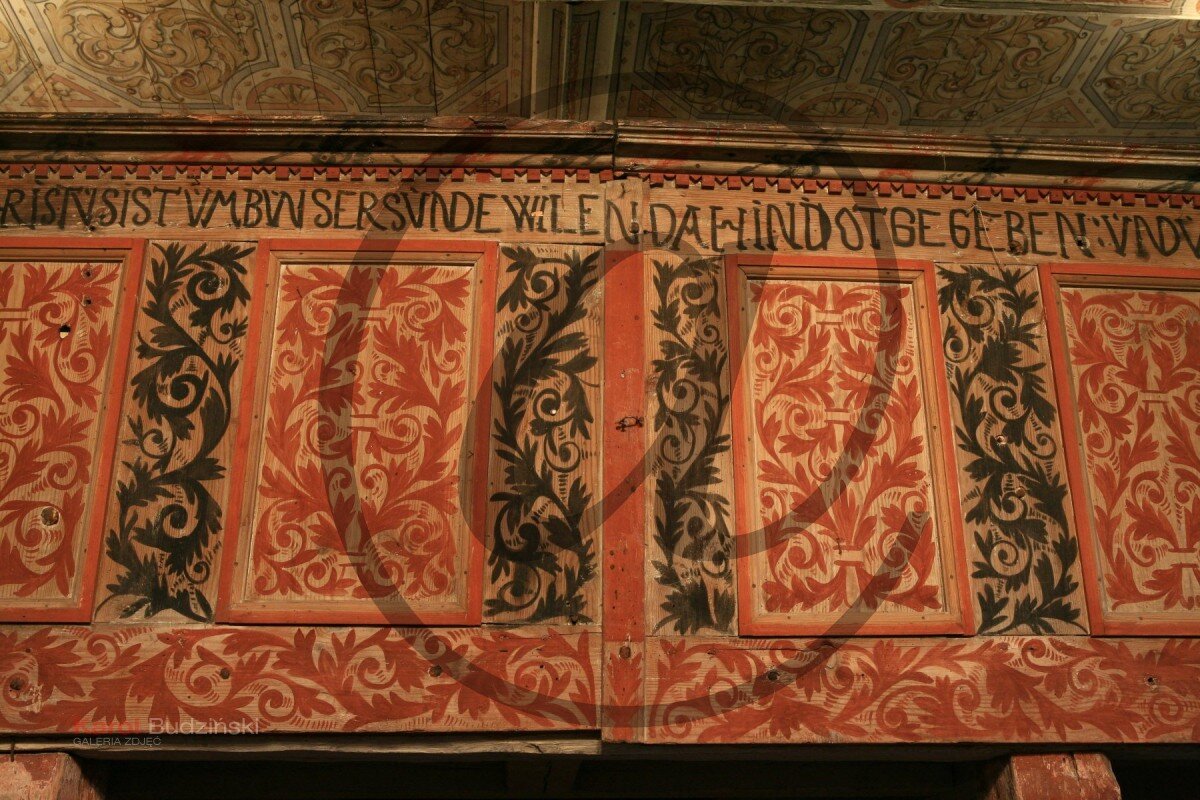 RISTVSIST VMBVNSERSVNDE WILEN.DAHINDOTGEGEBEN:VNDV
Budziński
GALERIA ZDJĘĆ